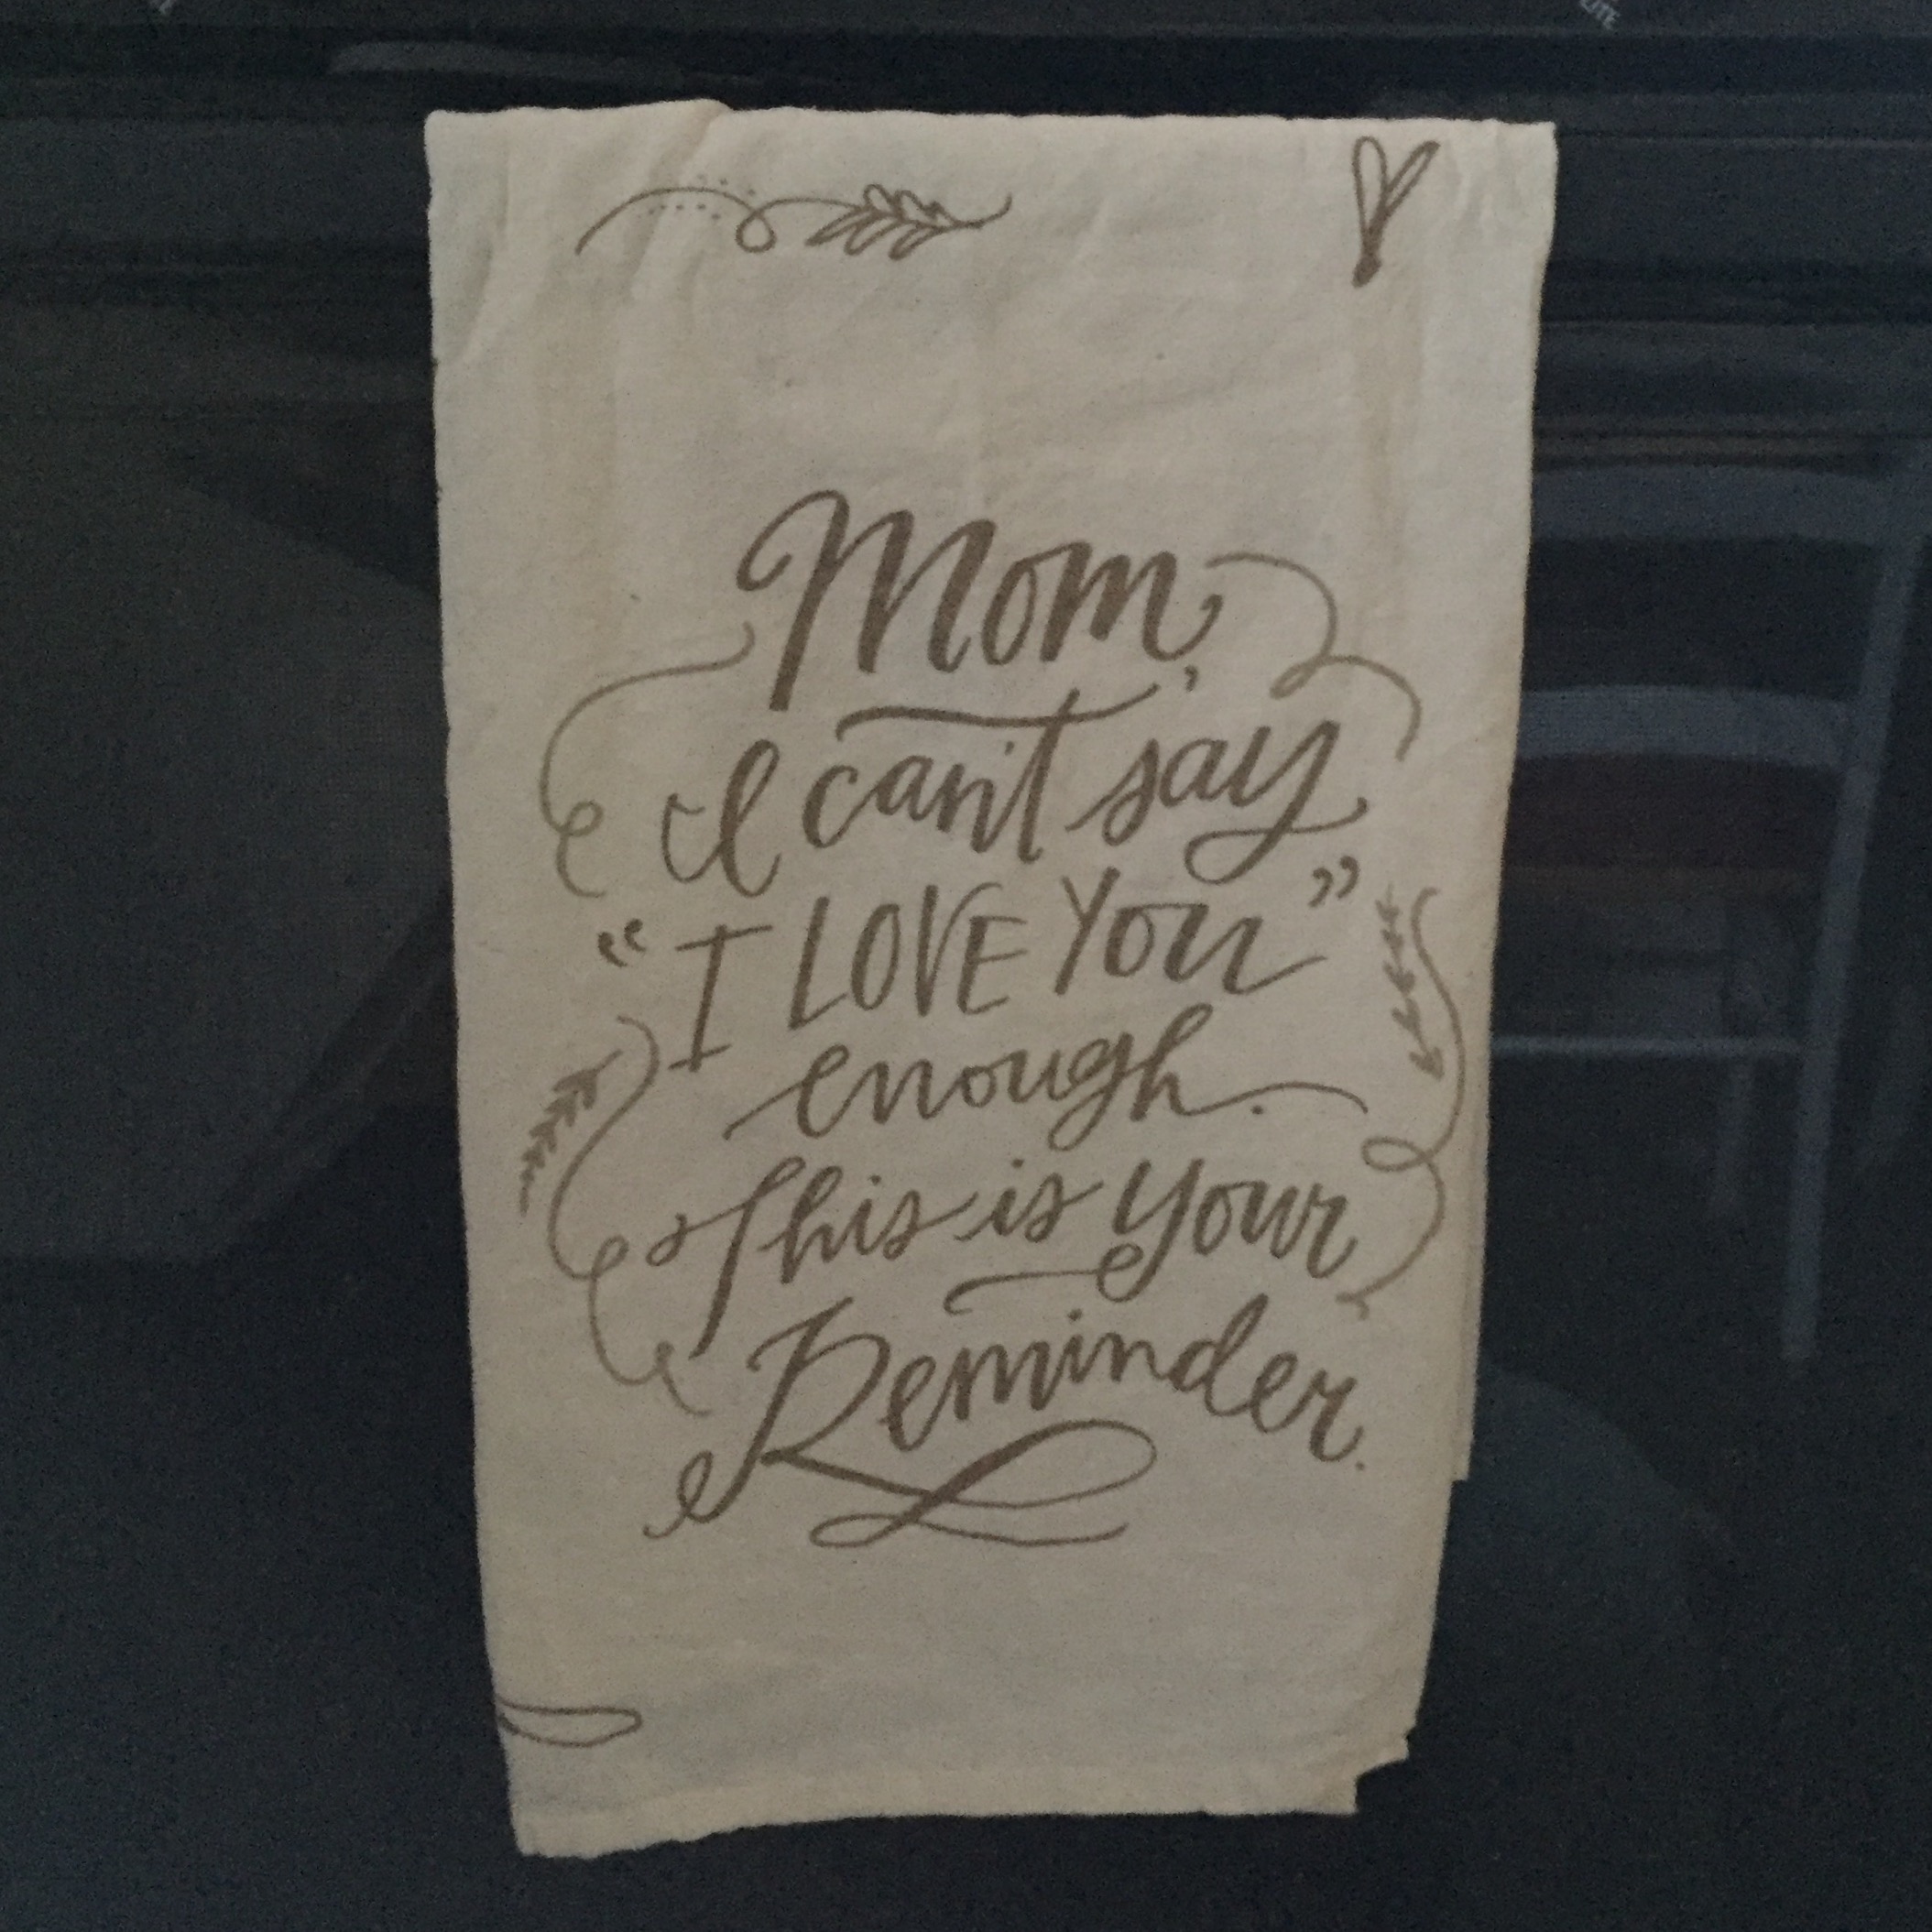 Mom,
I can't say
“I LOVE You”
enough.
This is your
Reminder.